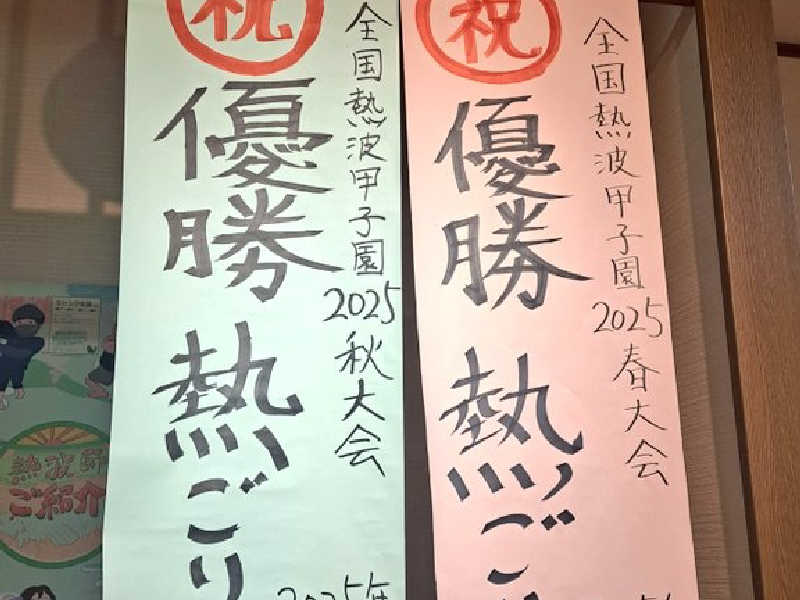 祝
全国熱波甲子園
2025春大会
優勝 熱ご
祝
全国熱波甲子園
2025秋大会
優勝 熱ごり
2025年
熱波師
ご紹介